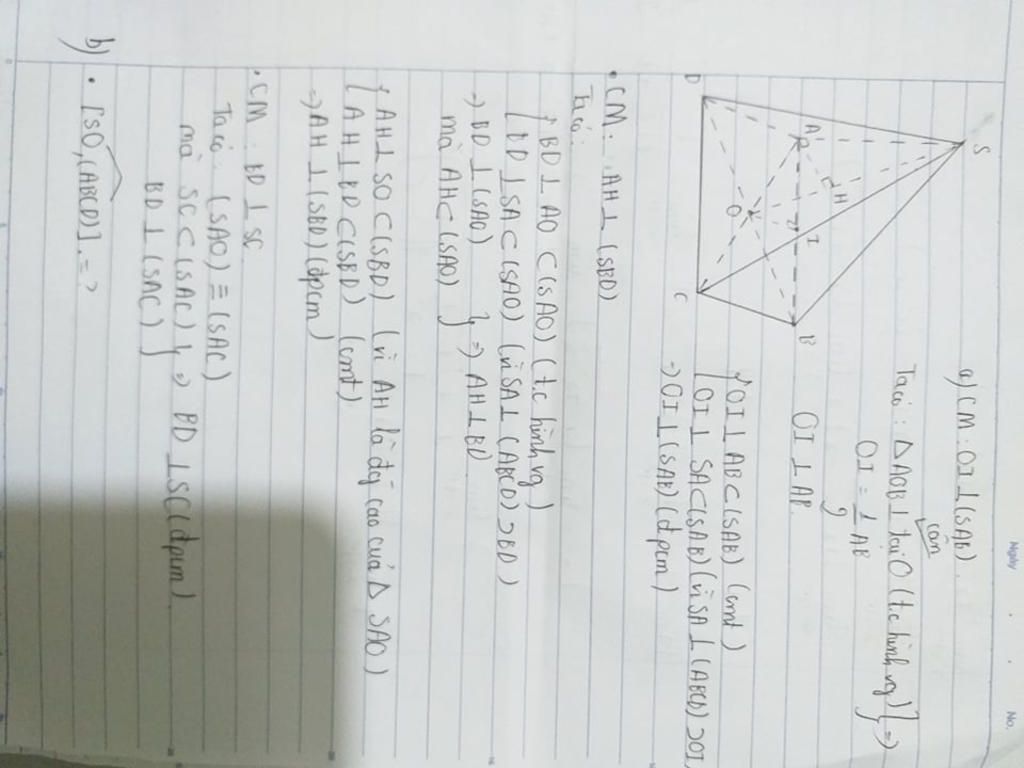 Ngày
No.
a) CM: OI⊥(SAB).
cân
Ta có: ΔAOB⊥ tại O (t.c hình vg) } =>
OI = 1/2 AB
OI⊥AB.
{ OI⊥AB⊂(SAB) (cmt)
{ OI⊥SA⊂(SAB) (vì SA⊥(ABCD)⊃OI
=> OI⊥(SAB) (đpcm)
S
A
H
I
B
D
O
C
• CM: AH⊥(SBD)
Ta có:
{ BD⊥AO⊂(SAO) (t.c hình vg)
{ BD⊥SA⊂(SAO) (vì SA⊥(ABCD)⊃BD)
=> BD⊥(SAO) } => AH⊥BD
mà AH⊂(SAO)
{ AH⊥SO⊂(SBD) (vì AH là đg cao của Δ SAO)
{ AH⊥BD⊂(SBD) (cmt)
=> AH⊥(SBD) (đpcm)
• CM: BD⊥SC
Ta có: (SAO) ≡ (SAC)
mà SC⊂(SAC) } => BD⊥SC (đpcm)
BD⊥(SAC)
b) • [SO,(ABCD)] = ?